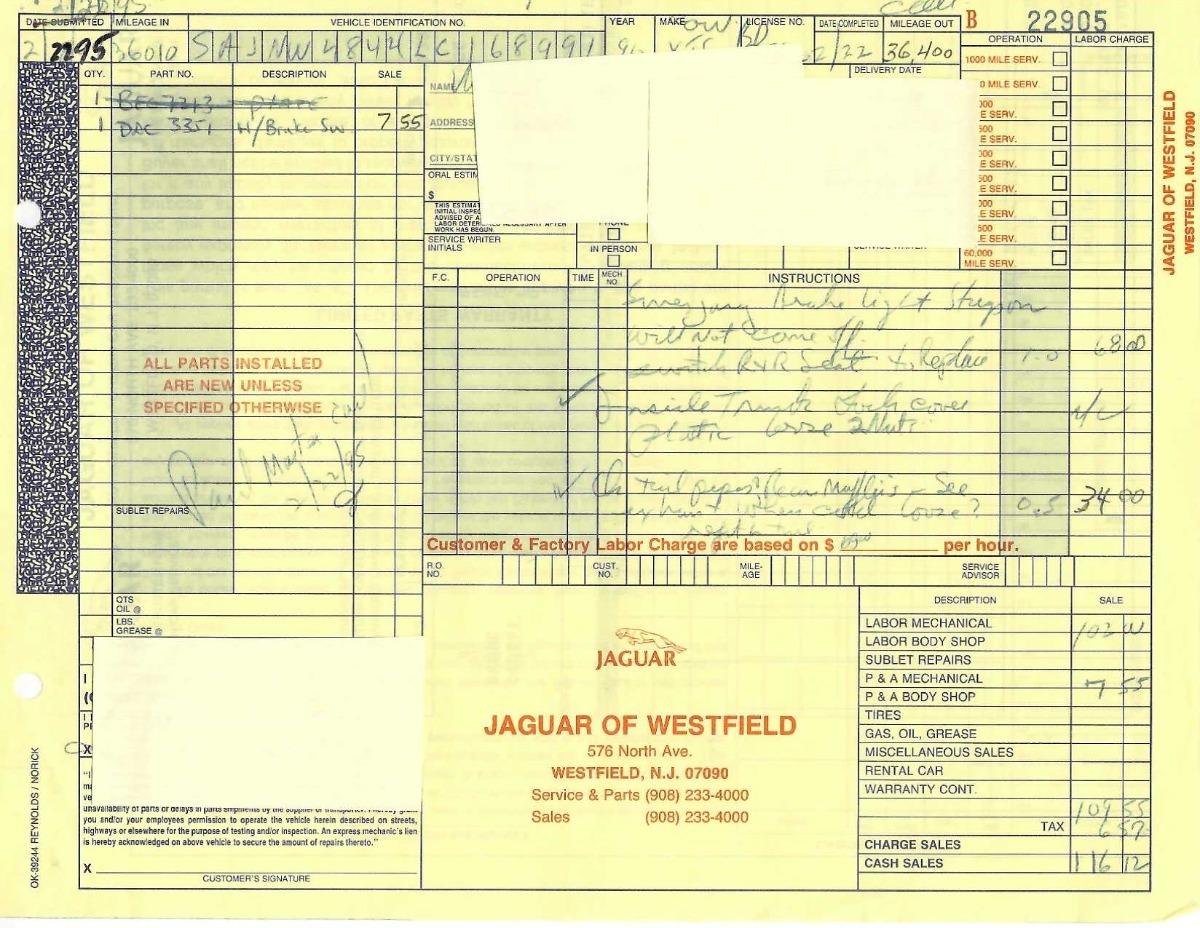 B 22905
DATE SUBMITTED MILEAGE IN VEHICLE IDENTIFICATION NO. YEAR MAKE LICENSE NO. DATE COMPLETED MILEAGE OUT
2295 36010 SAJNW4844LC168991 90 2/22 36,400
OPERATION LABOR CHARGE
QTY. PART NO. DESCRIPTION SALE
NAME
DELIVERY DATE
1000 MILE SERV.
0 MILE SERV.
1 BEC 7213 PLATE
1 DAC 3351 H/Brake Sw. 7 55
ADDRESS
CITY/STAT
ORAL ESTIM
$
THIS ESTIMAT
INITIAL INSPEC
ADVISED OF A
LABOR DETER NECESSARY AFTER
WORK HAS BEGUN.
SERVICE WRITER
INITIALS
PHONE
IN PERSON
SERVICE WRITER
000
SERV.
500
E SERV.
000
E SERV.
500
E SERV.
000
E SERV.
500
E SERV.
60,000
MILE SERV.
JAGUAR OF WESTFIELD
WESTFIELD, N.J. 07090
F.C. OPERATION TIME MECH NO. INSTRUCTIONS
Emergency Brake light Stays on
will Not come off.
switch R&R Seat to Replace 1.0 68.00
Inside Trunk Lock cover N/C
plastic loose 2 Nuts
Ck tail pipes Rear Mufflers - See
exhaust when cold loose? 0.5 34 00
ALL PARTS INSTALLED
ARE NEW UNLESS
SPECIFIED OTHERWISE
2/22/95
SUBLET REPAIRS
Customer & Factory Labor Charge are based on $ per hour.
R.O. NO. CUST. NO. MILE-AGE SERVICE ADVISOR
QTS
OIL @
LBS.
GREASE @
DESCRIPTION SALE
LABOR MECHANICAL 102 00
LABOR BODY SHOP
SUBLET REPAIRS
P & A MECHANICAL 7 55
P & A BODY SHOP
TIRES
GAS, OIL, GREASE
MISCELLANEOUS SALES
RENTAL CAR
WARRANTY CONT.
109 55
TAX 6 57
CHARGE SALES
CASH SALES 116 12
JAGUAR
JAGUAR OF WESTFIELD
576 North Ave.
WESTFIELD, N.J. 07090
Service & Parts (908) 233-4000
Sales (908) 233-4000
unavailability of parts or delays in parts shipments by the supplier or transporter. I hereby grant
you and/or your employees permission to operate the vehicle herein described on streets,
highways or elsewhere for the purpose of testing and/or inspection. An express mechanic's lien
is hereby acknowledged on above vehicle to secure the amount of repairs thereto."
X
CUSTOMER'S SIGNATURE
OK-39244 REYNOLDS / NORICK